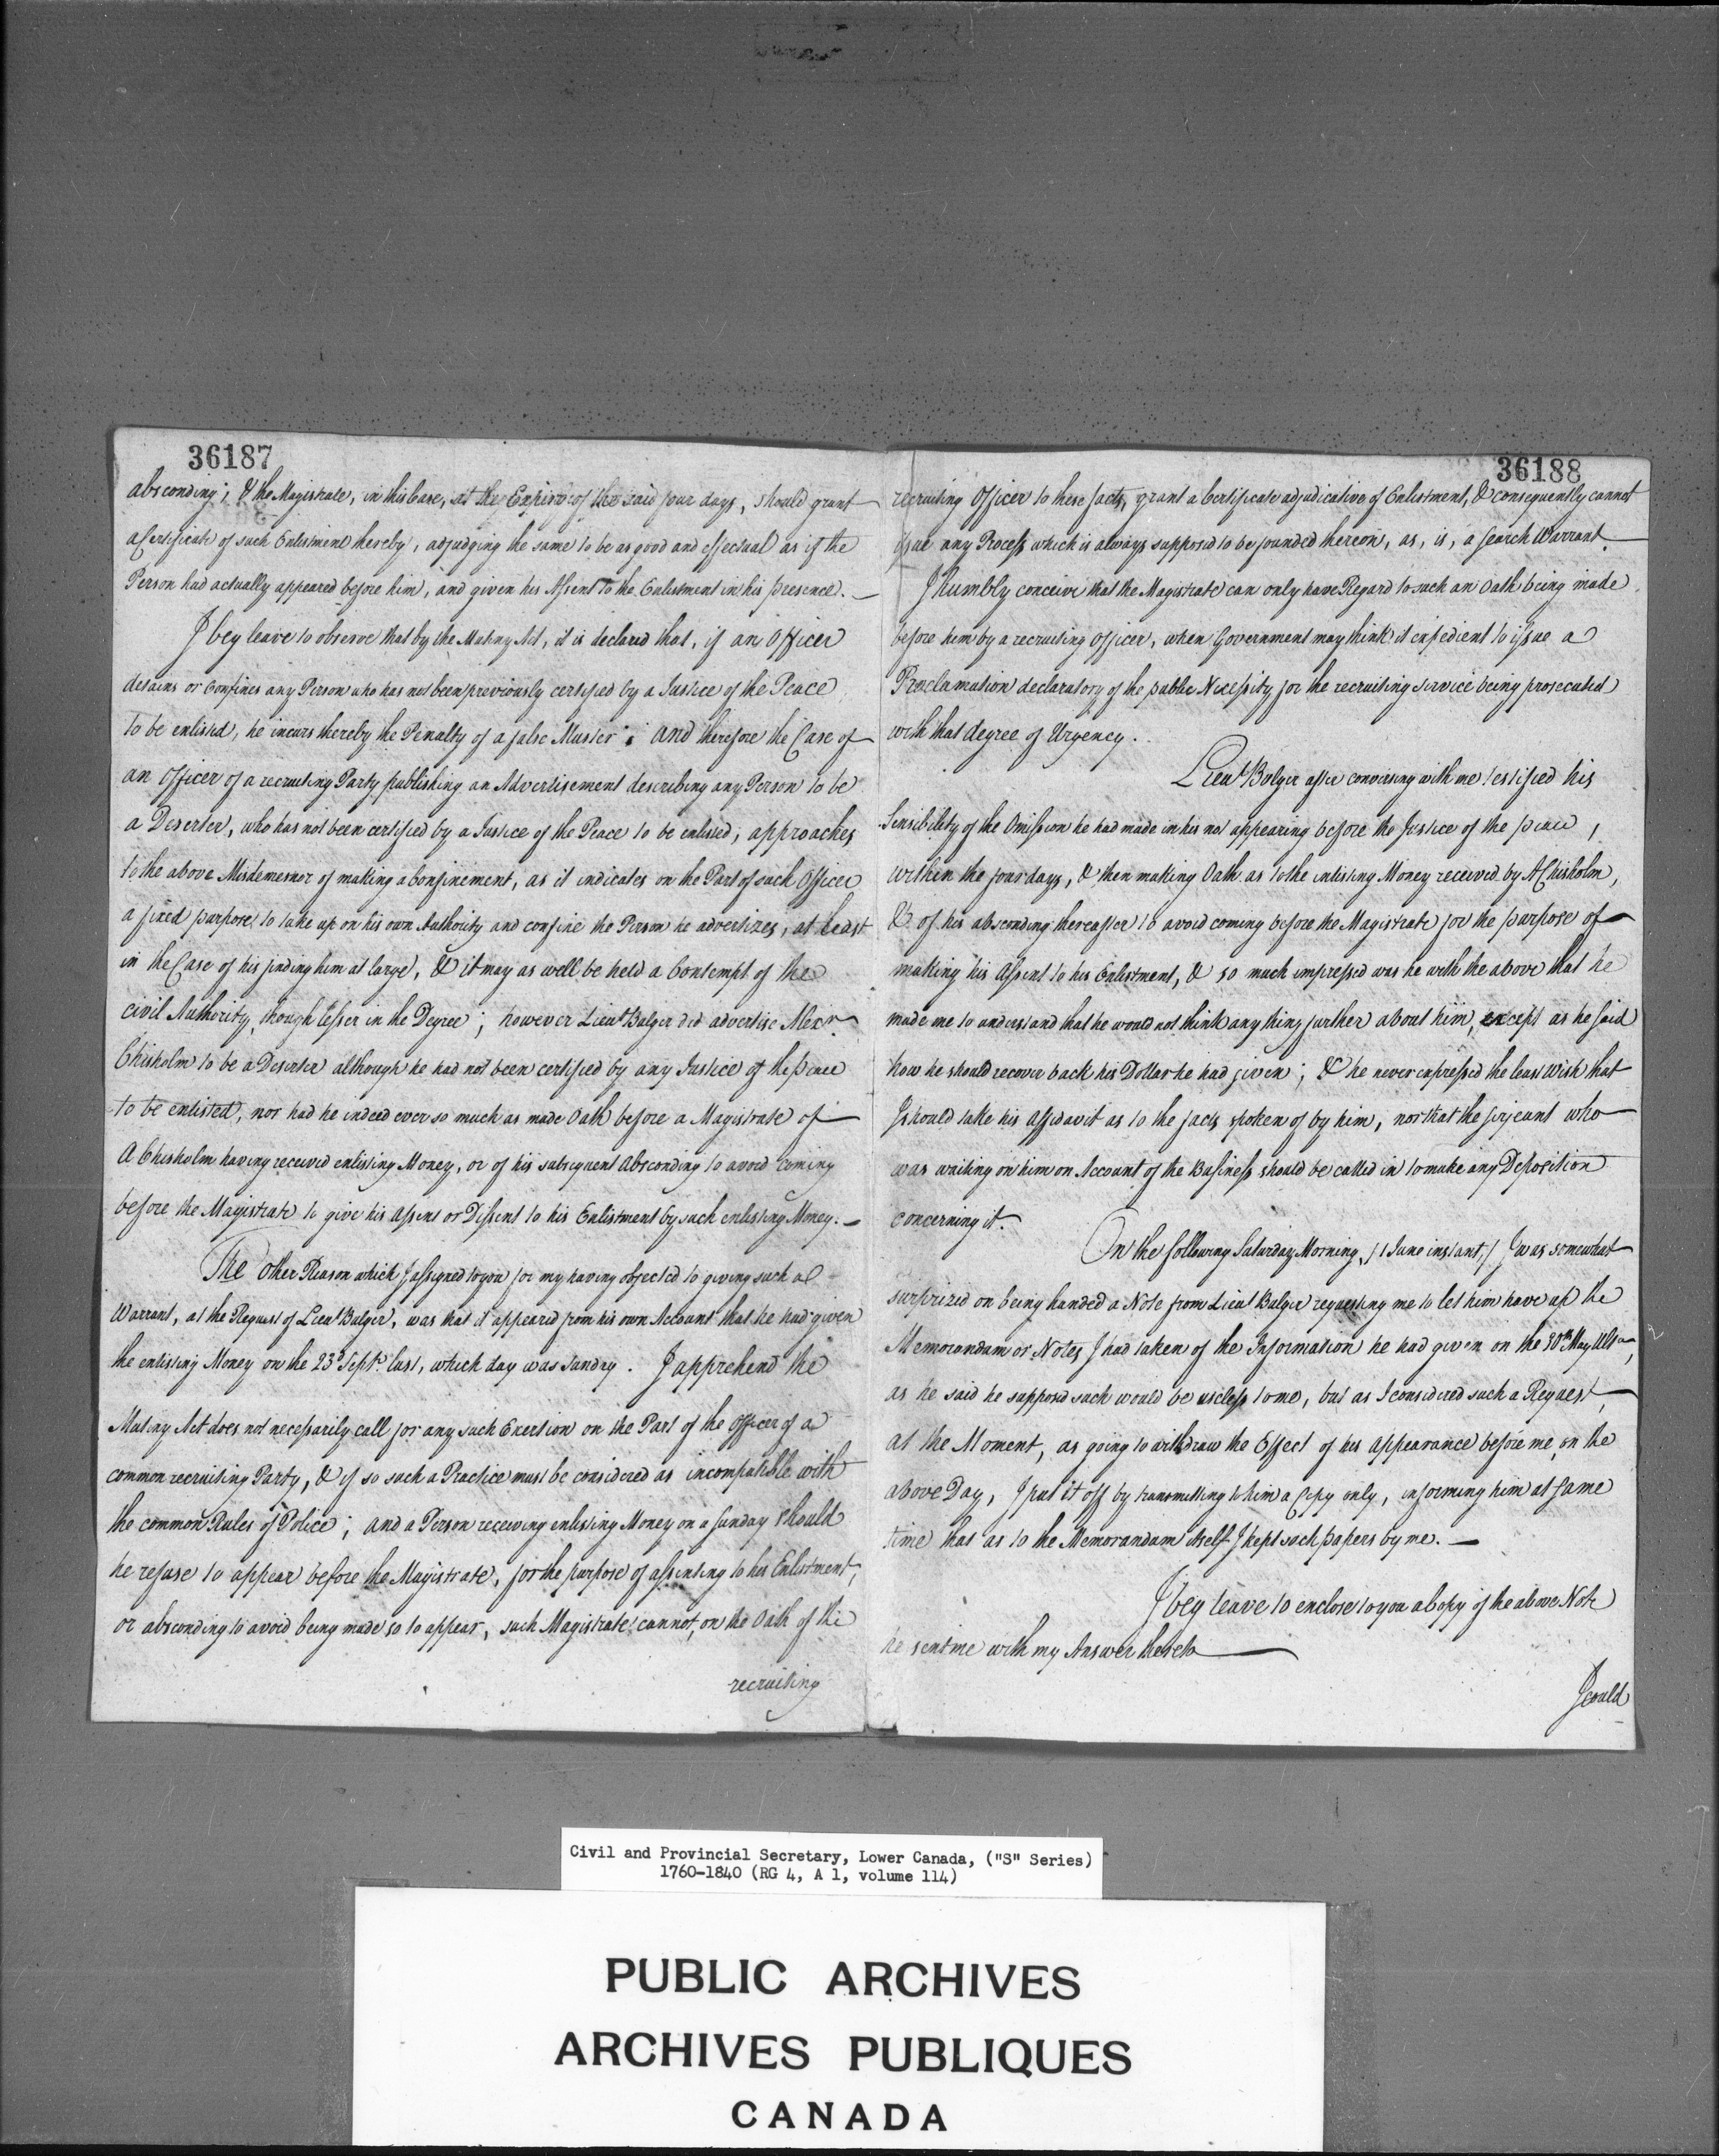 36187
absconding; & the Magistrate, in this Case, at the Expire of the said four days, should grant
a Certificate of such Enlistment hereby, adjudging the same to be as good and effectual as if the
Person had actually appeared before him, and given his Assent to the Enlistment in his presence. —
I beg leave to observe that by the Mutiny Act, it is declared that, if an Officer
detains or Confines any Person who has not been previously certified by a Justice of the Peace
to be enlisted, he incurs thereby the Penalty of a false Muster; and therefore the Case of
an Officer of a recruiting Party publishing an Advertisement describing any Person to be
a Deserter, who has not been certified by a Justice of the Peace to be enlisted, approaches
to the above Misdemesnor of making a Confinement, as it indicates on the Part of such Officer
a fixed purpose to take up on his own Authority and confine the Person he advertizes, at least
in the Case of his finding him at large, & it may as well be held a Contempt of the
civil Authority, though lesser in the Degree; however Lieut Bulger did advertise Alexr
Chisholm to be a Deserter although he had not been certified by any Justice of the peace
to be enlisted, nor had he indeed ever so much as made Oath before a Magistrate of
A Chisholm having received enlisting Money, or of his subsequent Absconding to avoid coming
before the Magistrate to give his Assent or Dissent to his Enlistment by such enlisting Money. —
The other Reason which I assigned to you for my having objected to giving such a
Warrant, at the Request of Lieut Bulger, was that it appeared from his own Account that he had given
the enlisting Money on the 23d Septr last, which day was Sunday. I apprehend the
Mutiny Act does not necessarily call for any such Exertion on the Part of the Officer of a
common recruiting Party, & if so such a Practice must be considered as incompatible with
the common Rules of Police; and a Person receiving enlisting Money on a Sunday should
he refuse to appear before the Magistrate, for the purpose of assenting to his Enlistment,
or absconding to avoid being made so to appear, such Magistrate cannot, on the Oath of the
recruiting
36188
recruiting Officer to these facts, grant a Certificate adjudicative of Enlistment, & consequently cannot
issue any Process which is always supposed to be founded thereon, as, is, a search Warrant.
I humbly conceive that the Magistrate can only have Regard to such an Oath being made
before him by a recruiting Officer, when Government may think it expedient to issue a
Proclamation declaratory of the public Necessity for the recruiting service being prosecuted
with that degree of Urgency.
Lieut Bulger after conversing with me testified his
Sensibility of the Omission he had made in his not appearing before the Justice of the peace,
within the four days, & then making Oath as to the enlisting Money received by A Chisholm,
& of his absconding thereafter to avoid coming before the Magistrate for the purpose of
making his Assent to his Enlistment, & so much impressed was he with the above that he
made me to understand that he would not think any thing further about him, except as he said
how he should recover back his Dollar he had given; & he never expressed the least Wish that
I should take his Affidavit as to the facts spoken of by him, nor that the serjeant who
was waiting on him on Account of the Business should be called in to make any Deposition
concerning it.
On the following Saturday Morning, /1 June instant,/ I was somewhat
surprized on being handed a Note from Lieut Bulger requesting me to let him have up the
Memorandum or Notes I had taken of the Information he had given on the 30th May Ulto,
as he said he supposed such would be useless to me, but as I considered such a Request,
at the Moment, as going to withdraw the Effect of his appearance before me, on the
above Day, I put it off by transmitting to him a Copy only, informing him at same
time that as to the Memorandum itself I kept such papers by me. —
I beg leave to enclose to you a Copy of the above Note
he sent me with my Answer thereto
I could
Civil and Provincial Secretary, Lower Canada, ("S" Series)
1760-1840 (RG 4, A 1, volume 114)
PUBLIC ARCHIVES
ARCHIVES PUBLIQUES
CANADA